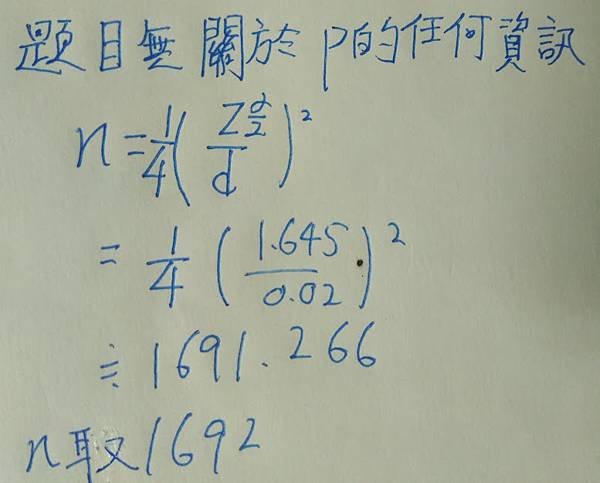 題目無關於p的任何資訊
n=1/4(Zα/2/d)²
=1/4(1.645/0.02)²
≒1691.266
n取1692